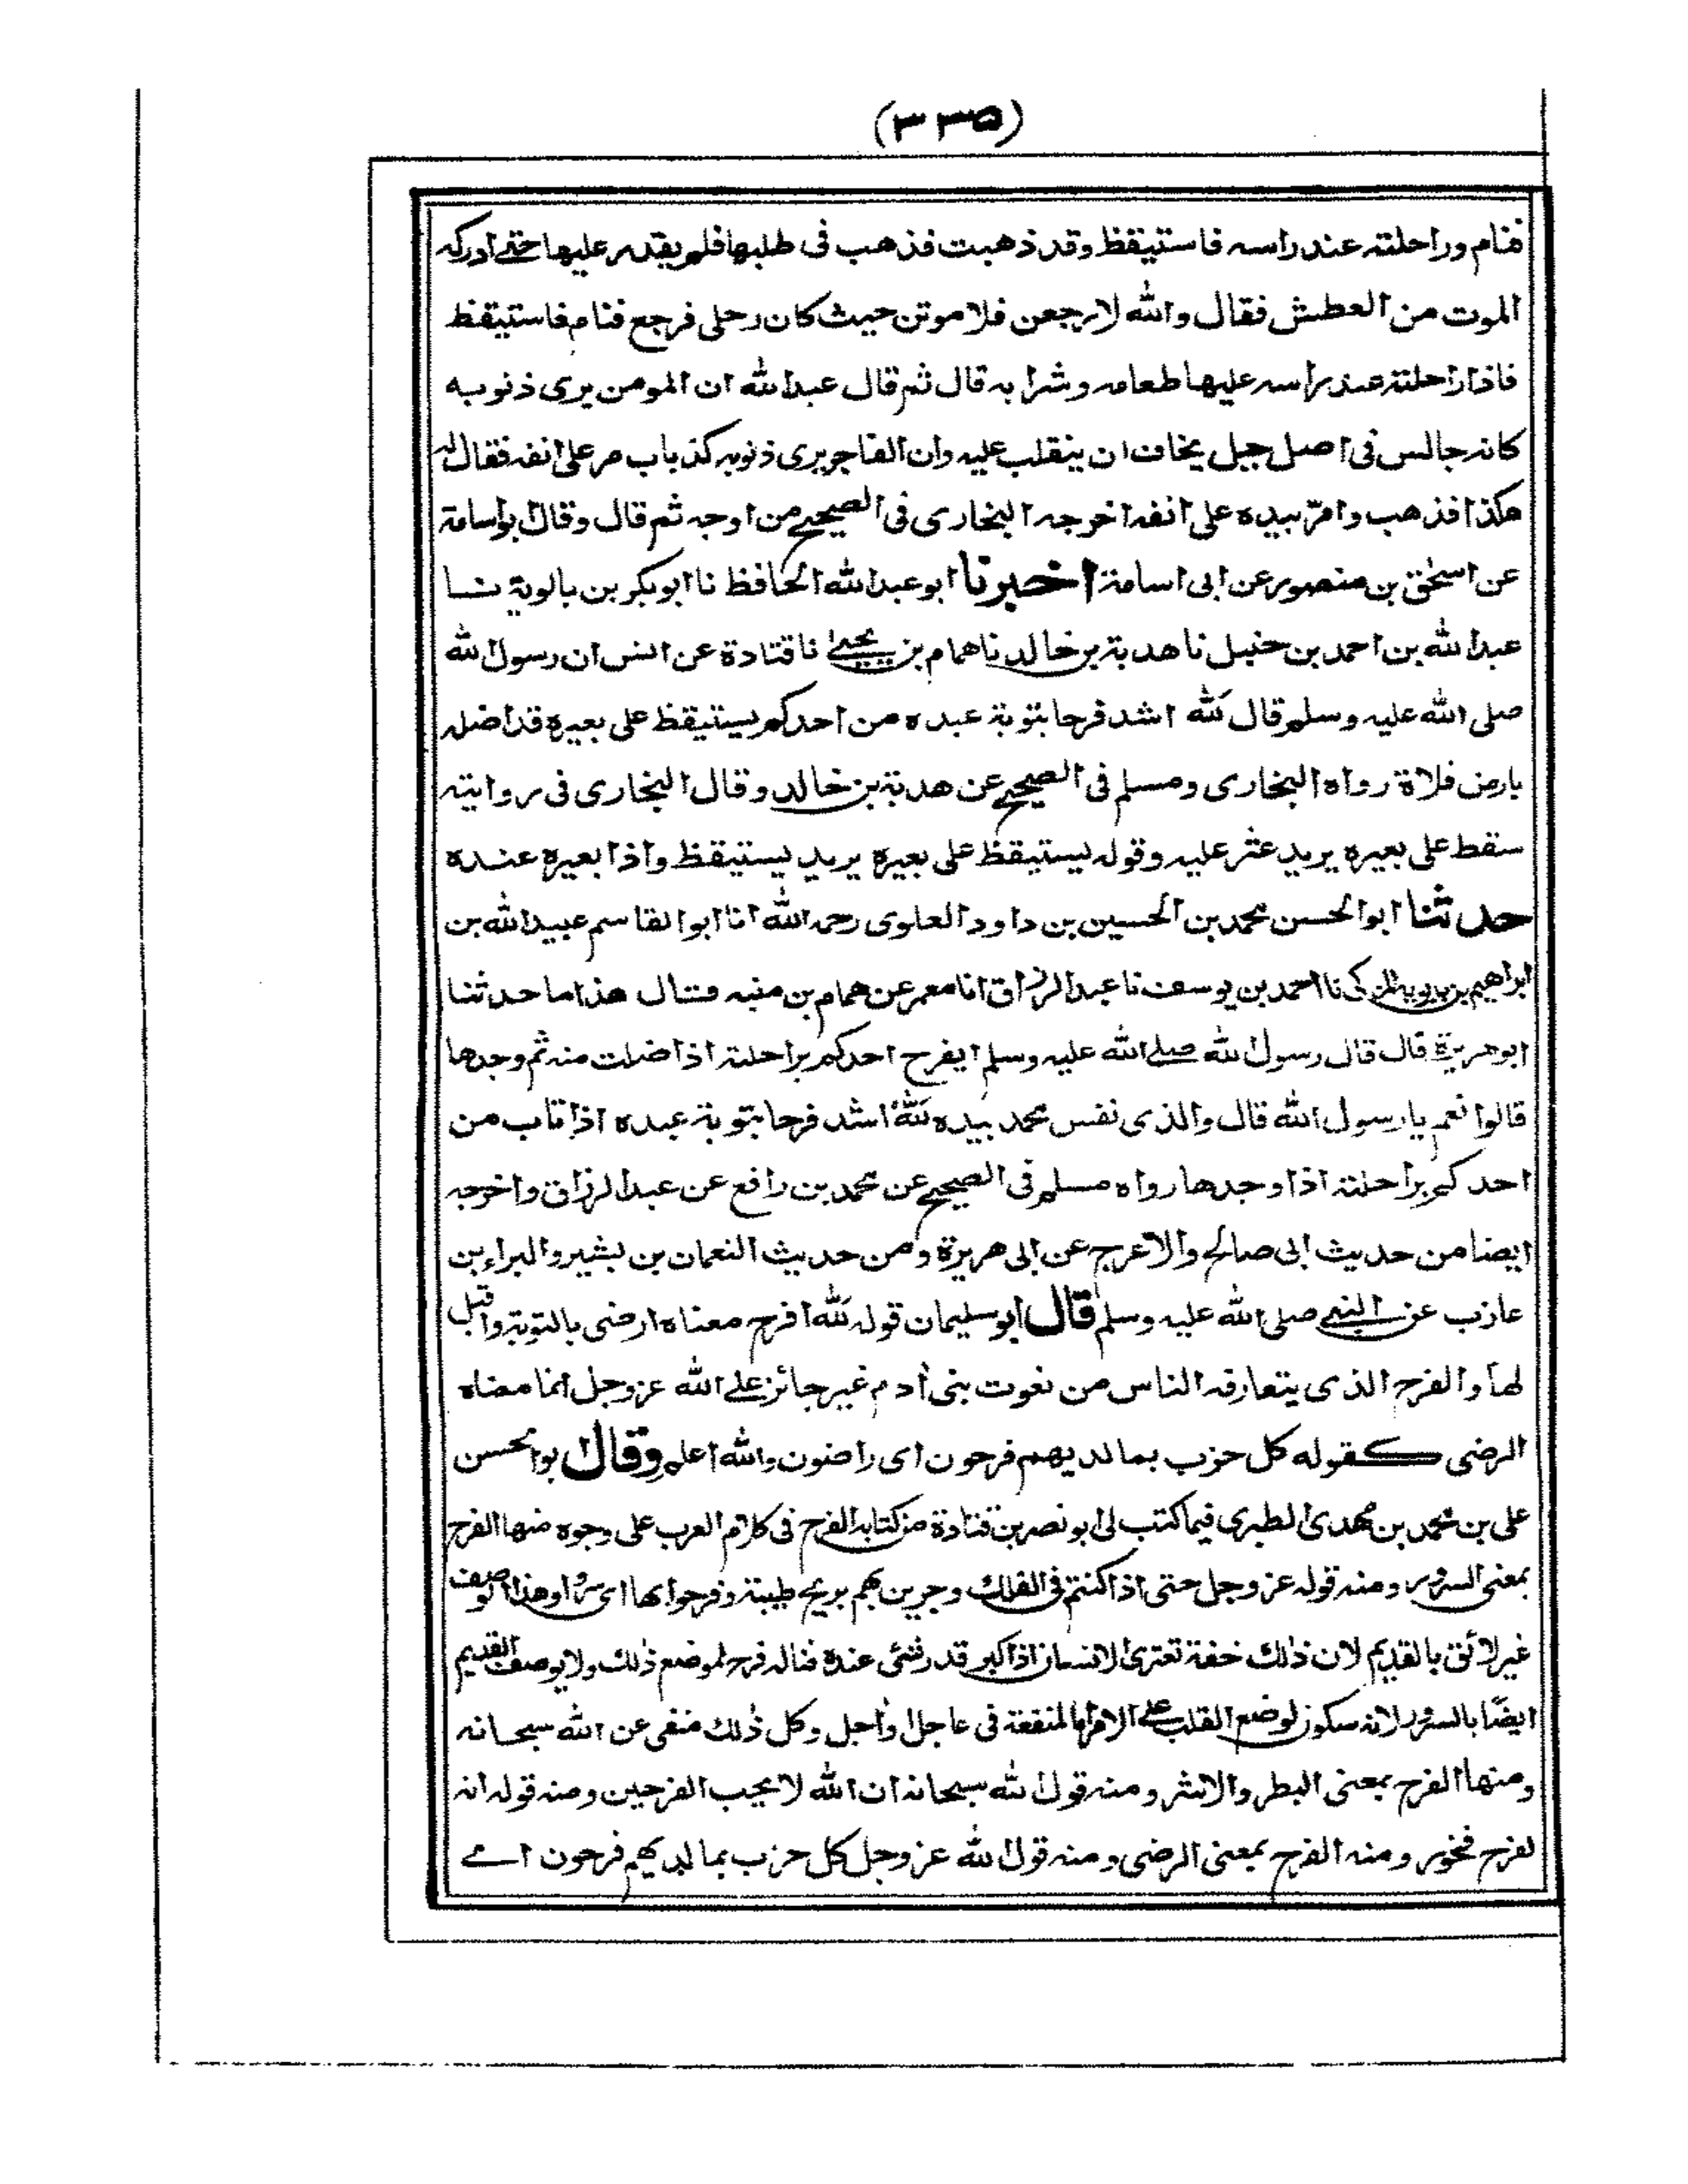 (٣٣٥)
فنام وراحلته عند راسه فاستيقظ وقد ذهبت فذهب فى طلبها فلم يقدر عليها حتى ادركه
الموت من العطش فقال والله لارجعن فلاموتن حيث كان رحلى فرجع فنام فاستيقظ
فاذا راحلته عند راسه عليها طعامه وشرابه قال ثم قال عبدالله ان المومن يرى ذنوبه
كانه جالس فى اصل جبل يخاف ان ينقلب عليه وان الفاجر يرى ذنوبه كذباب مر على انفه فقال له
هكذا فذهب وامرّ بيده على انفه اخرجه البخارى فى الصحيح من اوجه ثم قال وقال ابو أسامة
عن اسحٰق بن منصور عن ابى اسامة اخبرنا ابو عبدالله الحافظ نا ابوبكر بن بالوية نا
عبدالله بن احمد بن حنبل نا هدبة بن خالد نا همام بن يحيى نا قتادة عن انس ان رسول الله
صلى الله عليه وسلم قال لَلّه اشد فرحا بتوبة عبده من احدكم يستيقظ على بعيره قد اضله
بارض فلاة رواه البخارى ومسلم فى الصحيح عن هدبة بن خالد وقال البخارى فى روايته
سقط على بعيره يريد عثر عليه وقوله يستيقظ على بعيره يريد يستيقظ واذا بعيره عنده
حدثنا ابو الحسن محمد بن الحسين بن داود العلوى رحمه الله انا ابو القاسم عبيدالله بن
ابراهيم بن بالويه المزكى نا احمد بن يوسف نا عبدالرزاق انا معمر عن همام بن منبه قال هذا ما حدثنا
ابوهريرة قال قال رسول الله صلى الله عليه وسلم ايفرح احدكم براحلته اذا ضلت منه ثم وجدها
قالوا نعم يا رسول الله قال والذى نفس محمد بيده لَلّهُ اشد فرحا بتوبة عبده اذا تاب من
احدكم براحلته اذا وجدها رواه مسلم فى الصحيح عن محمد بن رافع عن عبدالرزاق واخرجه
ايضا من حديث ابى صالح والاعرج عن ابى هريرة ومن حديث النعمان بن بشير والبراء بن
عازب عن النبى صلى الله عليه وسلم قال ابو سليمان قوله لَلّه افرح معناه ارضى بالتوبة واقبل
لها والفرح الذى يتعارفه الناس من نعوت بنى أدم غير جائز على الله عز وجل انما معناه
الرضى كقوله كل حزب بما لديهم فرحون اى راضون والله اعلم وقال ابو الحسن
على بن محمد بن مهدى الطبرى فيما كتب لى ابو نصر بن قتادة من كتابه الفرح فى كلام العرب على وجوه منها الفرح
بمعنى السرور ومنه قوله عز وجل حتى اذا كنتم فى الفلك وجرين بهم بريح طيبة وفرحوا بها اى سروا وهذا الوصف
غير لائق بالقديم لان ذلك خفة تعترى الانسان اذا كبر قدر شئى عنده فناله فرح لموضع ذلك ولا يوصف القديم
ايضًا بالسرور لانه سكون لوضع القلب على الامر اما لمنفعة فى عاجل او أجل وكل ذلك منفى عن الله سبحانه
ومنها الفرح بمعنى البطر والاشر ومنه قول الله سبحانه ان الله لا يحب الفرحين ومنه قوله انه
لفرح فخور ومنه الفرح بمعنى الرضى ومنه قول الله عز وجل كل حزب بما لديهم فرحون اى